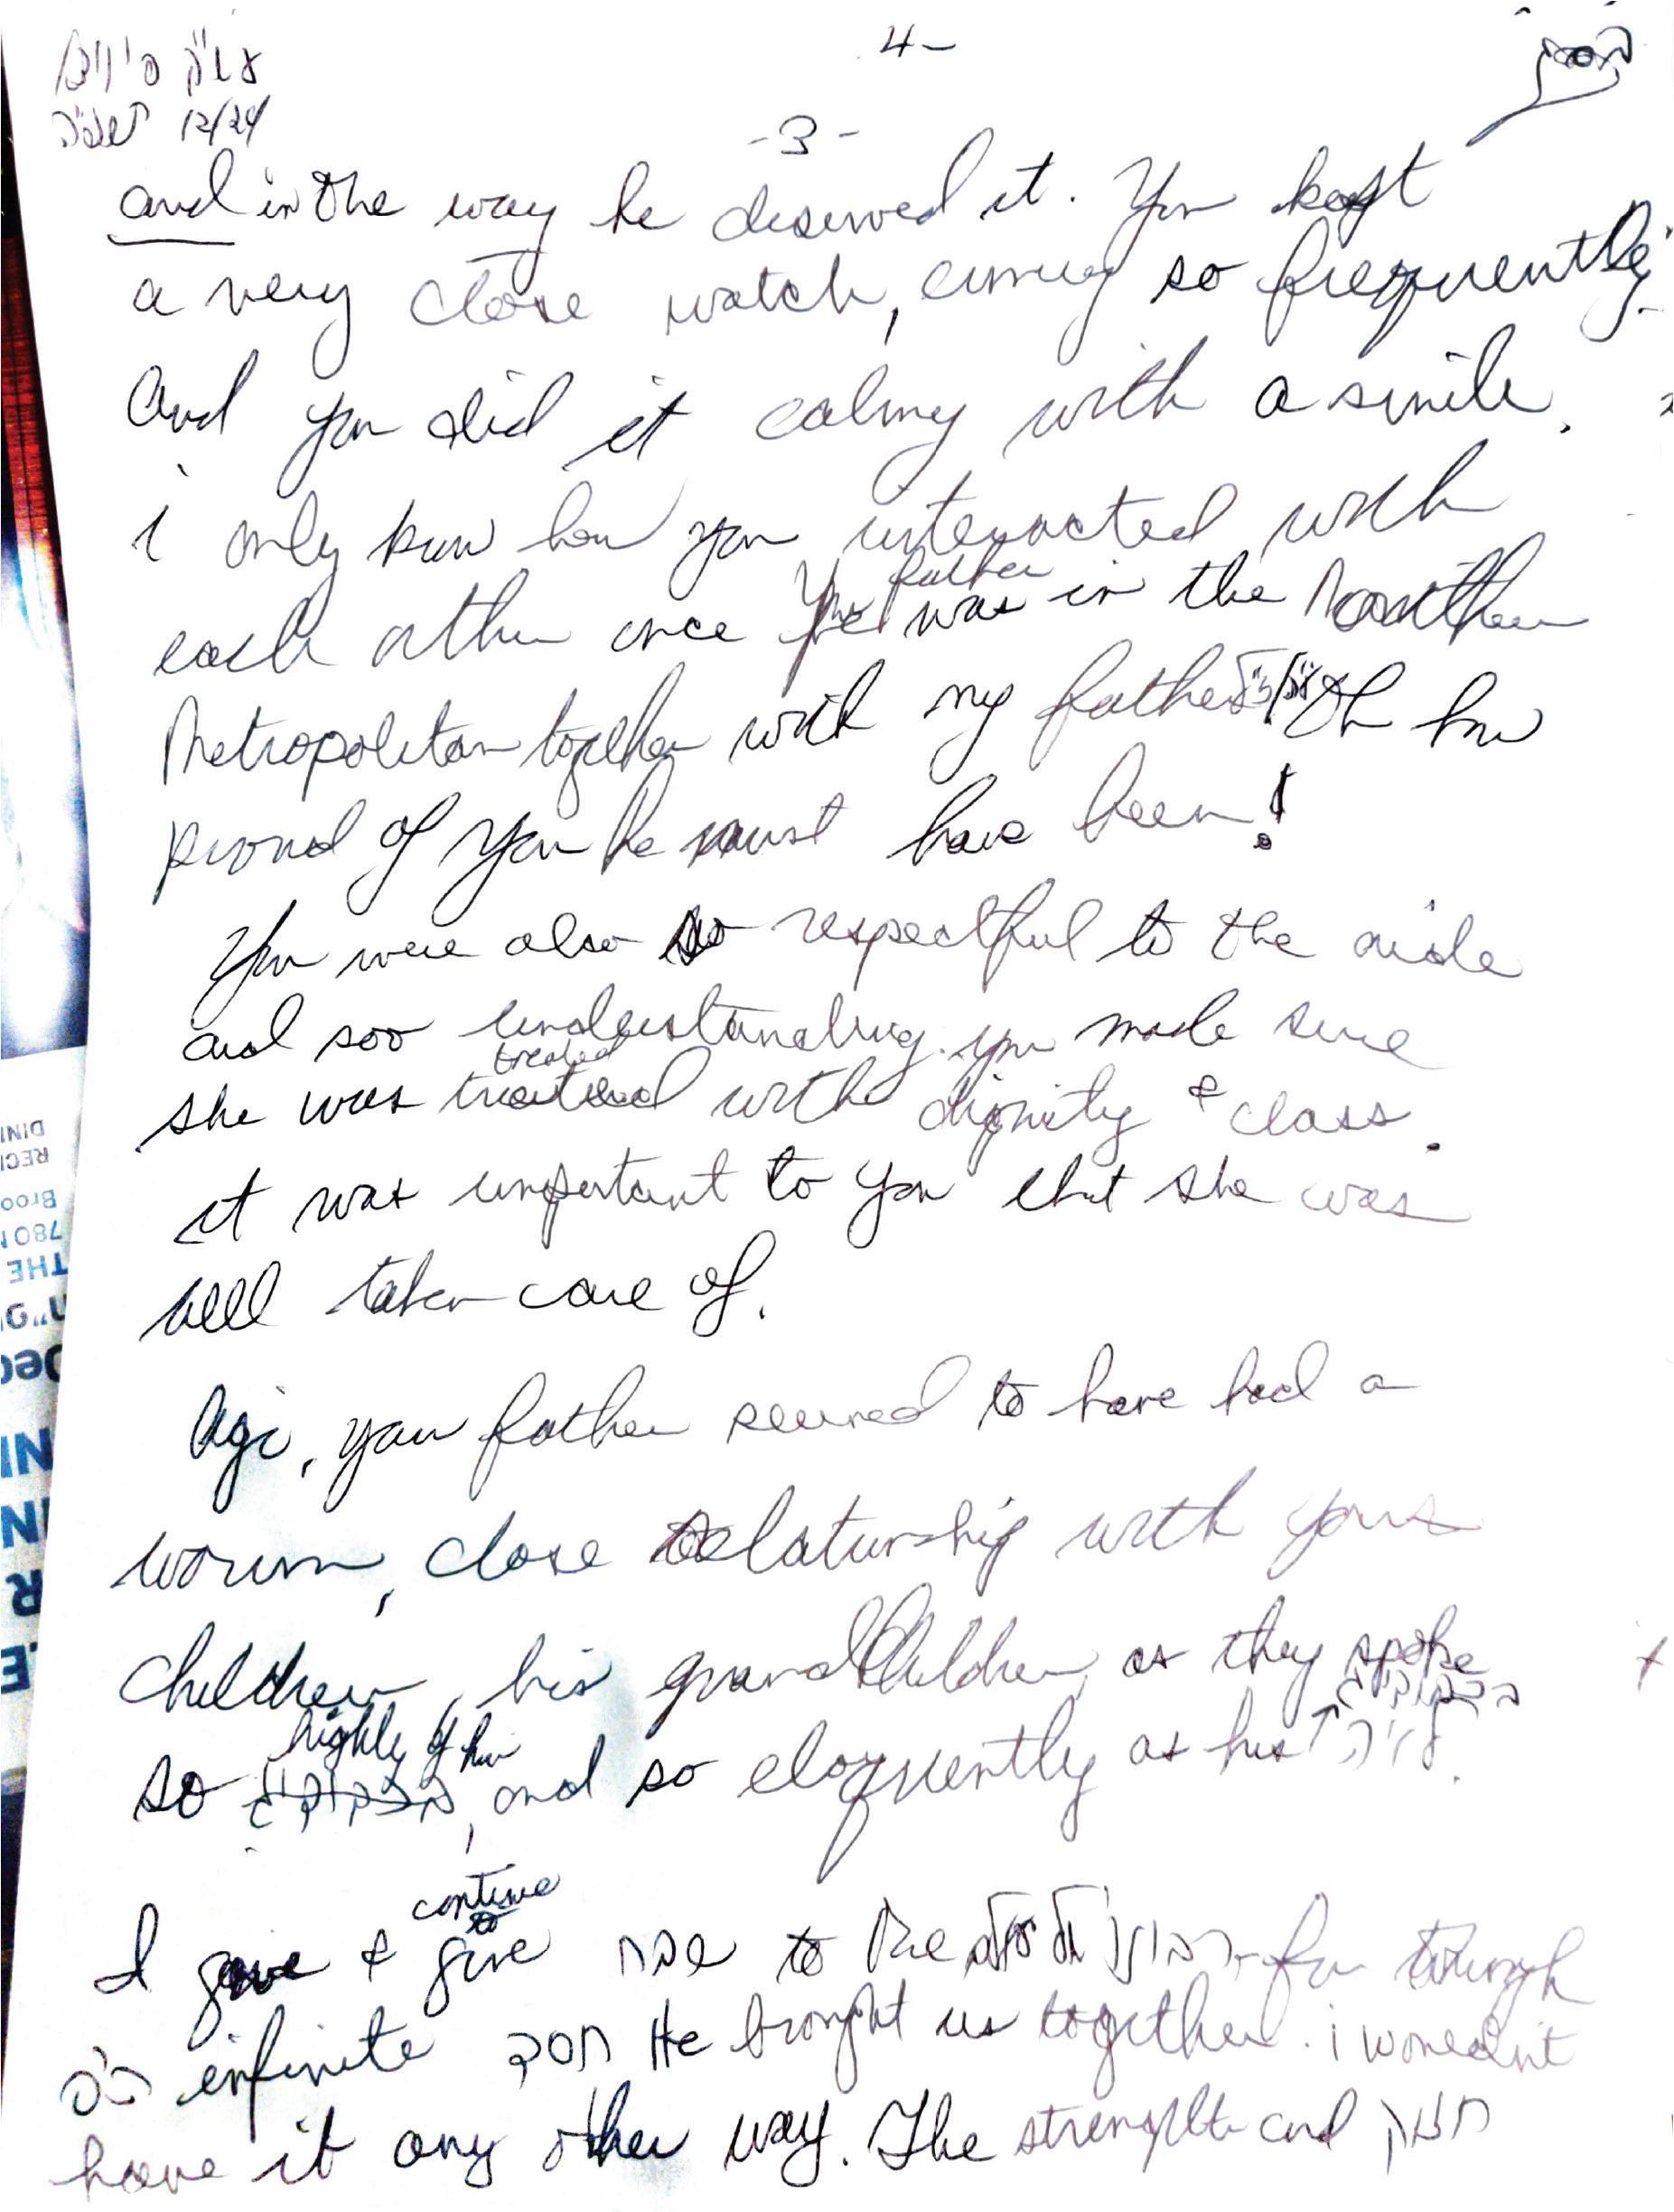 4-
12/24
-3-
and in the way he deserved it. You kept
a very close watch, coming so frequently.
And you did it calmy with a smile.
i only know how you interacted with
each other once Your father was in the Northern
Metropolitan together with my father Oh how
proud of you he must have been!
You were also so respectful to the aide
and soo understanding. you made sure
she was treated treated with dignity & class.
it was important to you that she was
well taken care of.
Agi, your father seemed to have had a
warm, close relationship with your
children, his grandchildren, as they spoke
so highly of him, and so eloquently as his
I gave & continue to give שבח to the רבונו של עולם for through
infinite חסד He brought us together. i wouldn't
have it any other way. The strength and חיזוק